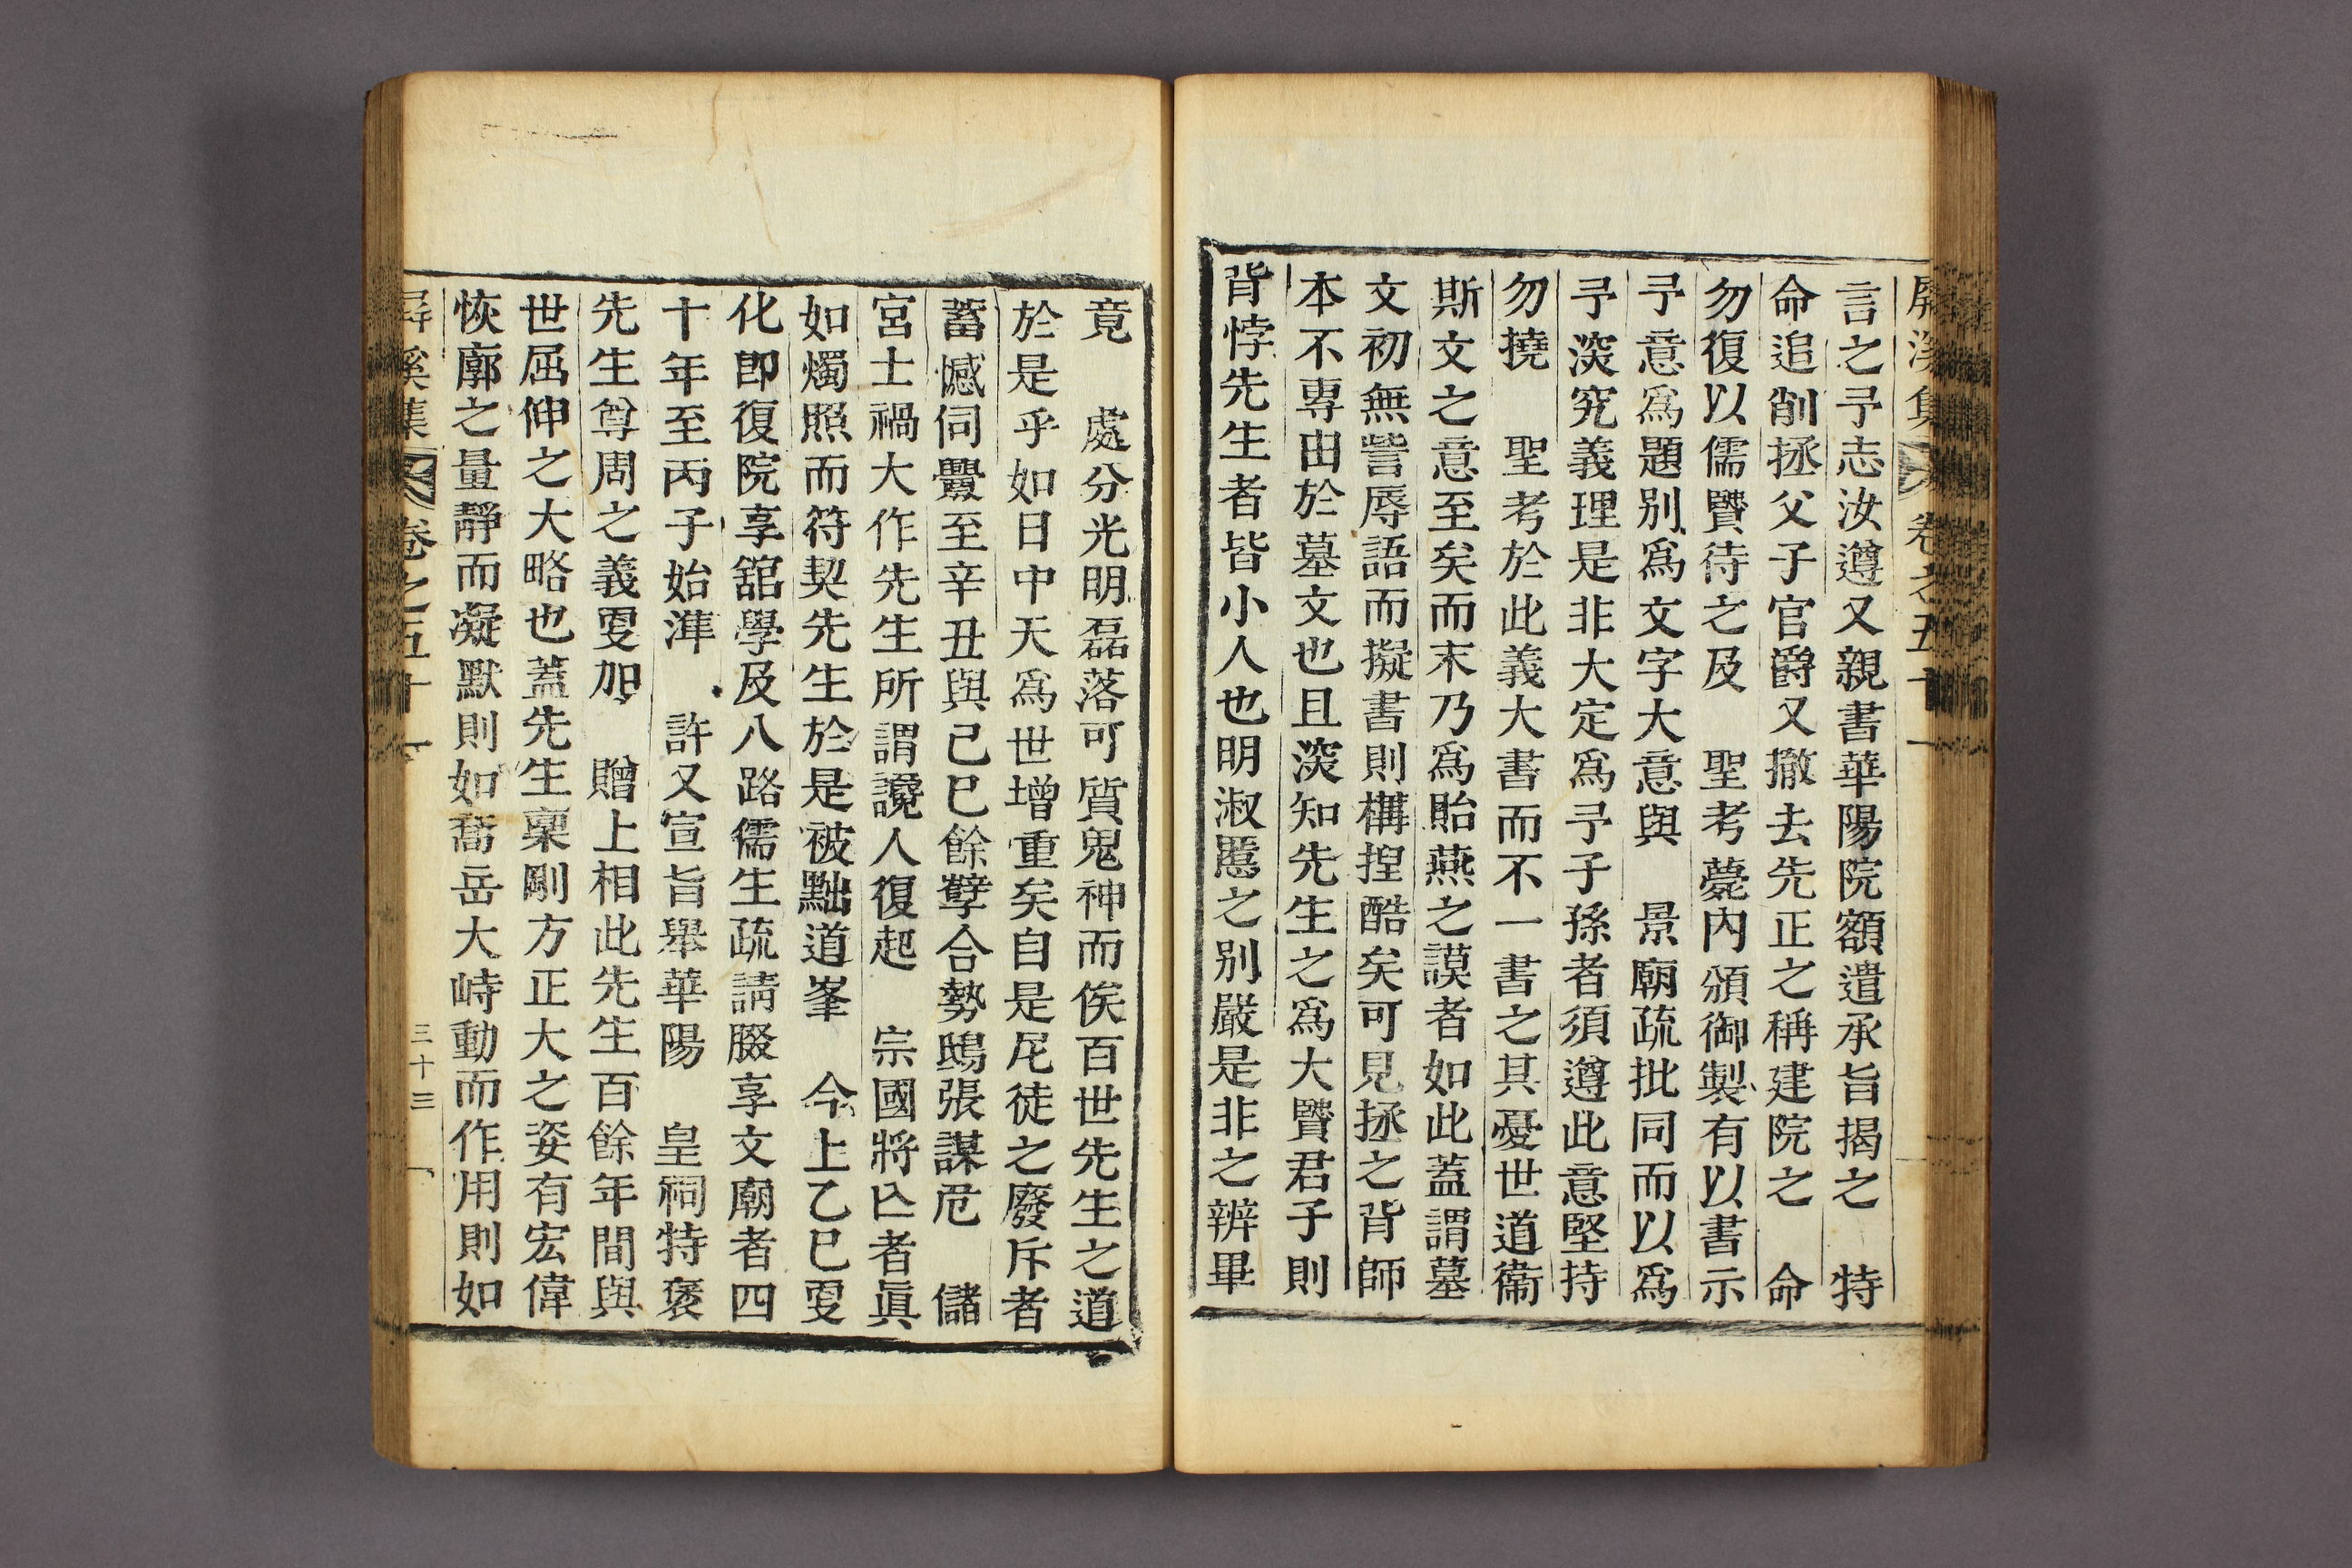 屛溪集 卷之五十一
言之予志汝遵又親書華陽院額遣承旨揭之 特
命追削拯父子官爵又撤去先正之稱建院之 命
勿復以儒贒待之及 聖考薨內頒御製有以書示
予意爲題別爲文字大意與 景廟疏批同而以爲
予深究義理是非大定爲予子孫者須遵此意堅持
勿撓 聖考於此義大書而不一書之其憂世道衞
斯文之意至矣而末乃爲貽燕之謨者如此蓋謂墓
文初無訾辱語而擬書則構揑酷矣可見拯之背師
本不專由於墓文也且深知先生之爲大贒君子則
背悖先生者皆小人也明淑慝之別嚴是非之辨畢
竟 處分光明磊落可質鬼神而俟百世先生之道
於是乎如日中天爲世增重矣自是尼徒之廢斥者
蓄憾伺釁至辛丑與己巳餘孼合勢鴟張謀危 儲
宮士禍大作先生所謂讒人復起 宗國將亾者眞
如燭照而符契先生於是被黜道峯 今上乙巳更
化卽復院享舘學及八路儒生疏請腏享文廟者四
十年至丙子始準 許又宣旨舉華陽 皇祠特褒
先生尊周之義更加 贈上相此先生百餘年間與
世屈伸之大略也蓋先生稟剛方正大之姿有宏偉
恢廓之量靜而凝默則如喬岳大峙動而作用則如
屛溪集 卷之五十一 三十三